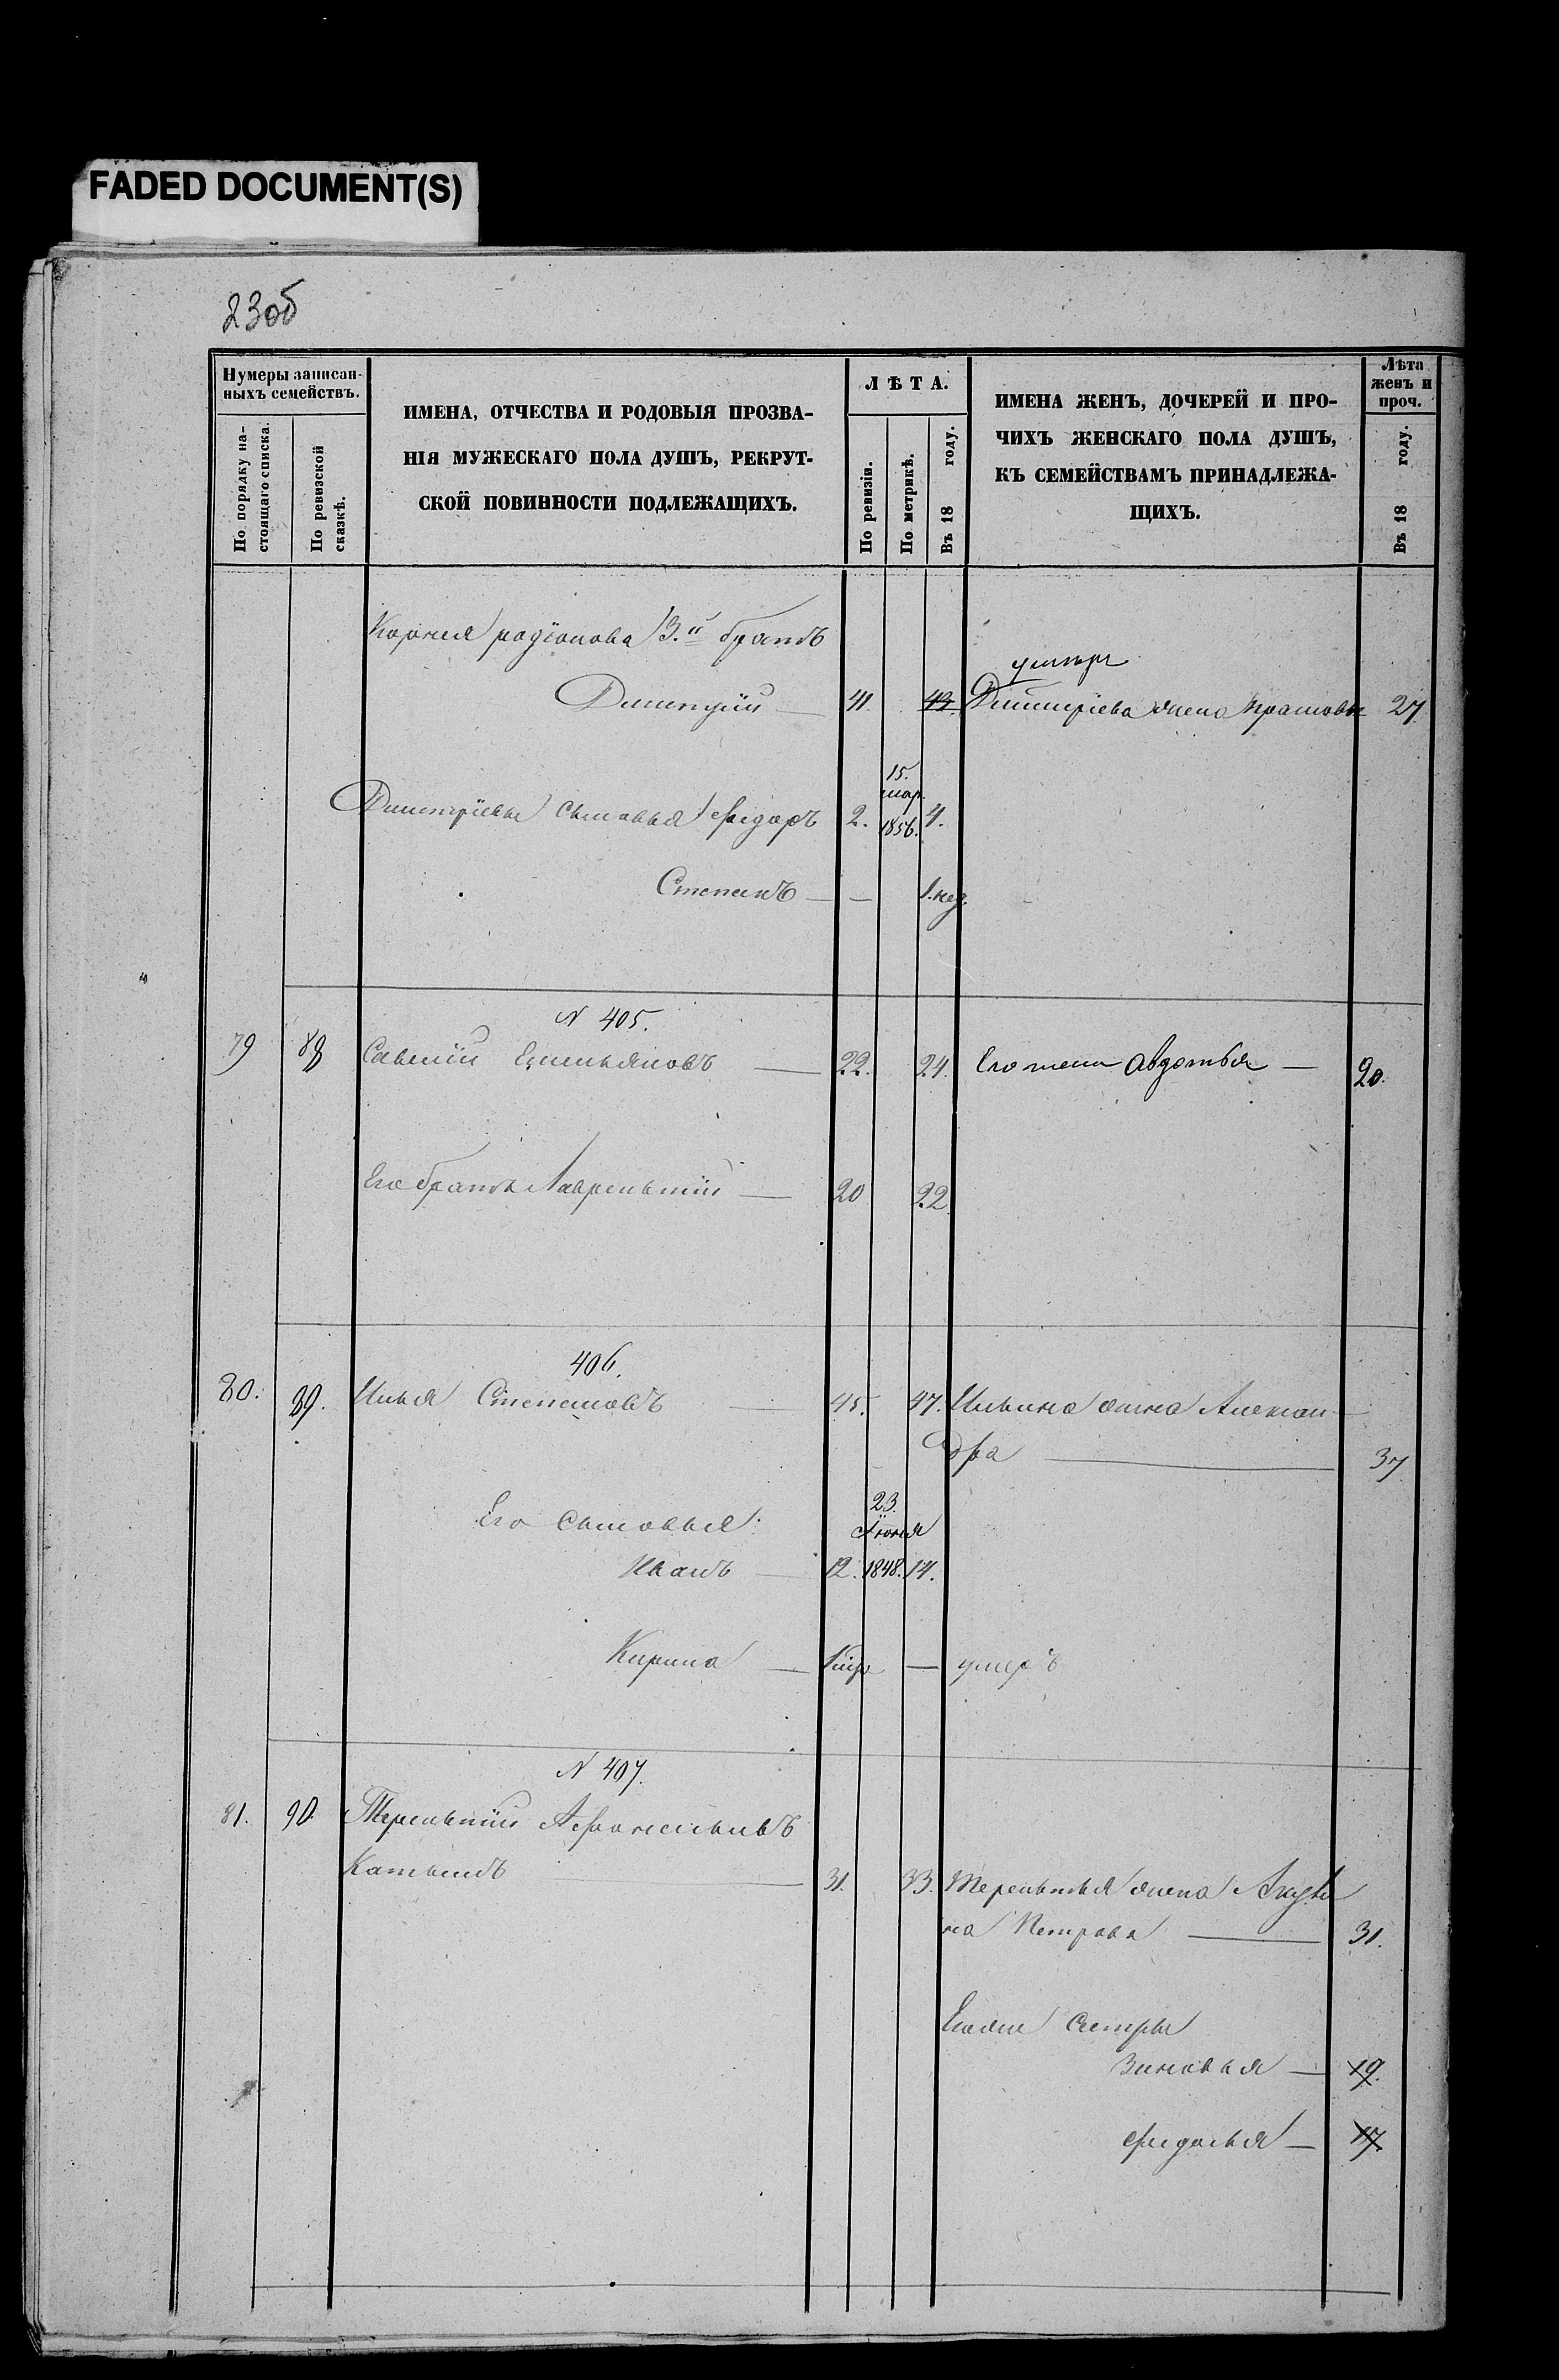 FADED DOCUMENT(S)
23об
Нумеры записан-
ныхъ семействъ.
По порядку на-
стоящаго списка.
По ревизской
сказкѣ.
ИМЕНА, ОТЧЕСТВА И РОДОВЫЯ ПРОЗВА-
НІЯ МУЖЕСКАГО ПОЛА ДУШЪ, РЕКРУТ-
СКОЙ ПОВИННОСТИ ПОДЛЕЖАЩИХЪ.
ЛѢТА.
По ревизіи.
По метрикѣ.
Въ 18 году.
ИМЕНА ЖЕНЪ, ДОЧЕРЕЙ И ПРО-
ЧИХЪ ЖЕНСКАГО ПОЛА ДУШЪ,
КЪ СЕМЕЙСТВАМЪ ПРИНАДЛЕЖА-
ЩИХЪ.
Лѣта
женъ и
проч.
Въ 18 году.
Корнея родіонова 3.й братъ
Дмитрій — 41. 43. Дмитріева жена 27.
15.
мар.
Дмитріевы сыновья Федоръ 2. 1856. 4.
Степанъ — — 1. нед.
N 405.
79 88 Савелій Емельяновъ — 22. 24. Его жена Авдотья — 20.
Его братъ Лаврентій — 20 22.
406.
80. 89. Илья Степановъ — 45. 47. Ильина жена Алексан-
дра — 37.
Его сыновья: 23.
Іюня
Иванъ — 12. 1848. 14.
Кирила — — умеръ
N 407.
81. 90. Терентій Афонасьевъ
— 31. 33. Терентья жена
на Петрова — 31.
Егоже сестры
Зиновья — 19.
Федосья — 17.